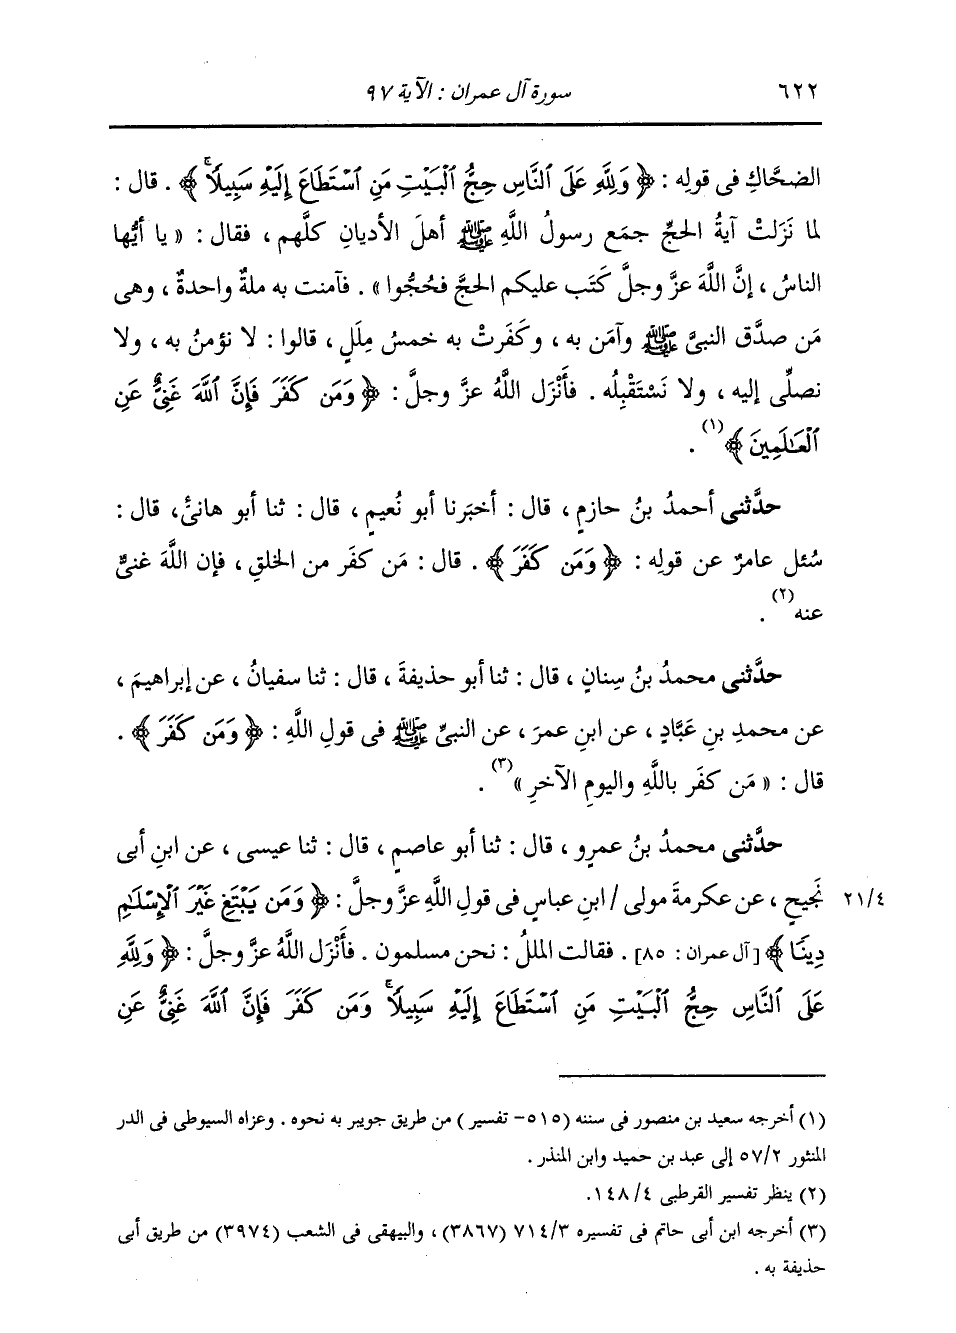 ٦٢٢ سورة آل عمران : الآية ٩٧
الضحَّاكِ فى قولِه : ﴿ وَلِلَّهِ عَلَى ٱلنَّاسِ حِجُّ ٱلْبَيْتِ مَنِ ٱسْتَطَاعَ إِلَيْهِ سَبِيلًاۚ ﴾ . قال :
لما نَزَلتْ آيةُ الحجِّ جمَع رسولُ اللَّهِ ﷺ أهلَ الأديانِ كلَّهم ، فقال : « يا أيُّها
الناسُ ، إنَّ اللَّهَ عزَّ وجلَّ كَتَب عليكم الحجَّ فحُجُّوا » . فآمنت به ملةٌ واحدةٌ ، وهى
مَن صدَّق النبىَّ ﷺ وآمَن به ، وكَفَرتْ به خمسُ مِلَلٍ ، قالوا : لا نؤمنُ به ، ولا
نصلِّى إليه ، ولا نَسْتَقْبِلُه . فأَنْزَل اللَّهُ عزَّ وجلَّ : ﴿ وَمَن كَفَرَ فَإِنَّ ٱللَّهَ غَنِىٌّ عَنِ
ٱلْعَـٰلَمِينَ ﴾(١) .
حدَّثنى أحمدُ بنُ حازمٍ ، قال : أخبَرنا أبو نُعيمٍ ، قال : ثنا أبو هانئ، قال :
سُئل عامرٌ عن قولِه : ﴿ وَمَن كَفَرَ ﴾ . قال : مَن كفَر من الخلقِ ، فإن اللَّهَ غنىٌّ
عنه(٢) .
حدَّثنى محمدُ بنُ سِنانٍ ، قال : ثنا أبو حذيفةَ ، قال : ثنا سفيانُ ، عن إبراهيمَ ،
عن محمدِ بنِ عَبَّادٍ ، عن ابنِ عمرَ ، عن النبىِّ ﷺ فى قولِ اللَّهِ : ﴿ وَمَن كَفَرَ ﴾ .
قال : « مَن كفَر باللَّهِ واليومِ الآخرِ »(٣) .
حدَّثنى محمدُ بنُ عمرٍو ، قال : ثنا أبو عاصمٍ ، قال : ثنا عيسى ، عن ابنِ أبى
نَجيحٍ ، عن عكرمةَ مولى / ابنِ عباسٍ فى قولِ اللَّهِ عزَّ وجلَّ : ﴿ وَمَن يَبْتَغِ غَيْرَ ٱلْإِسْلَـٰمِ ٢١/٤
دِينًا ﴾ [آل عمران : ٨٥] . فقالت المللُ : نحن مسلمون . فأَنْزَل اللَّهُ عزَّ وجلَّ : ﴿ وَلِلَّهِ
عَلَى ٱلنَّاسِ حِجُّ ٱلْبَيْتِ مَنِ ٱسْتَطَاعَ إِلَيْهِ سَبِيلًاۚ وَمَن كَفَرَ فَإِنَّ ٱللَّهَ غَنِىٌّ عَنِ
(١) أخرجه سعيد بن منصور فى سننه (٥١٥- تفسير ) من طريق جويبر به نحوه . وعزاه السيوطى فى الدر
المنثور ٥٧/٢ إلى عبد بن حميد وابن المنذر .
(٢) ينظر تفسير القرطبى ١٤٨/٤.
(٣) أخرجه ابن أبى حاتم فى تفسيره ٧١٤/٣ (٣٨٦٧) ، والبيهقى فى الشعب (٣٩٧٤) من طريق أبى
حذيفة به .